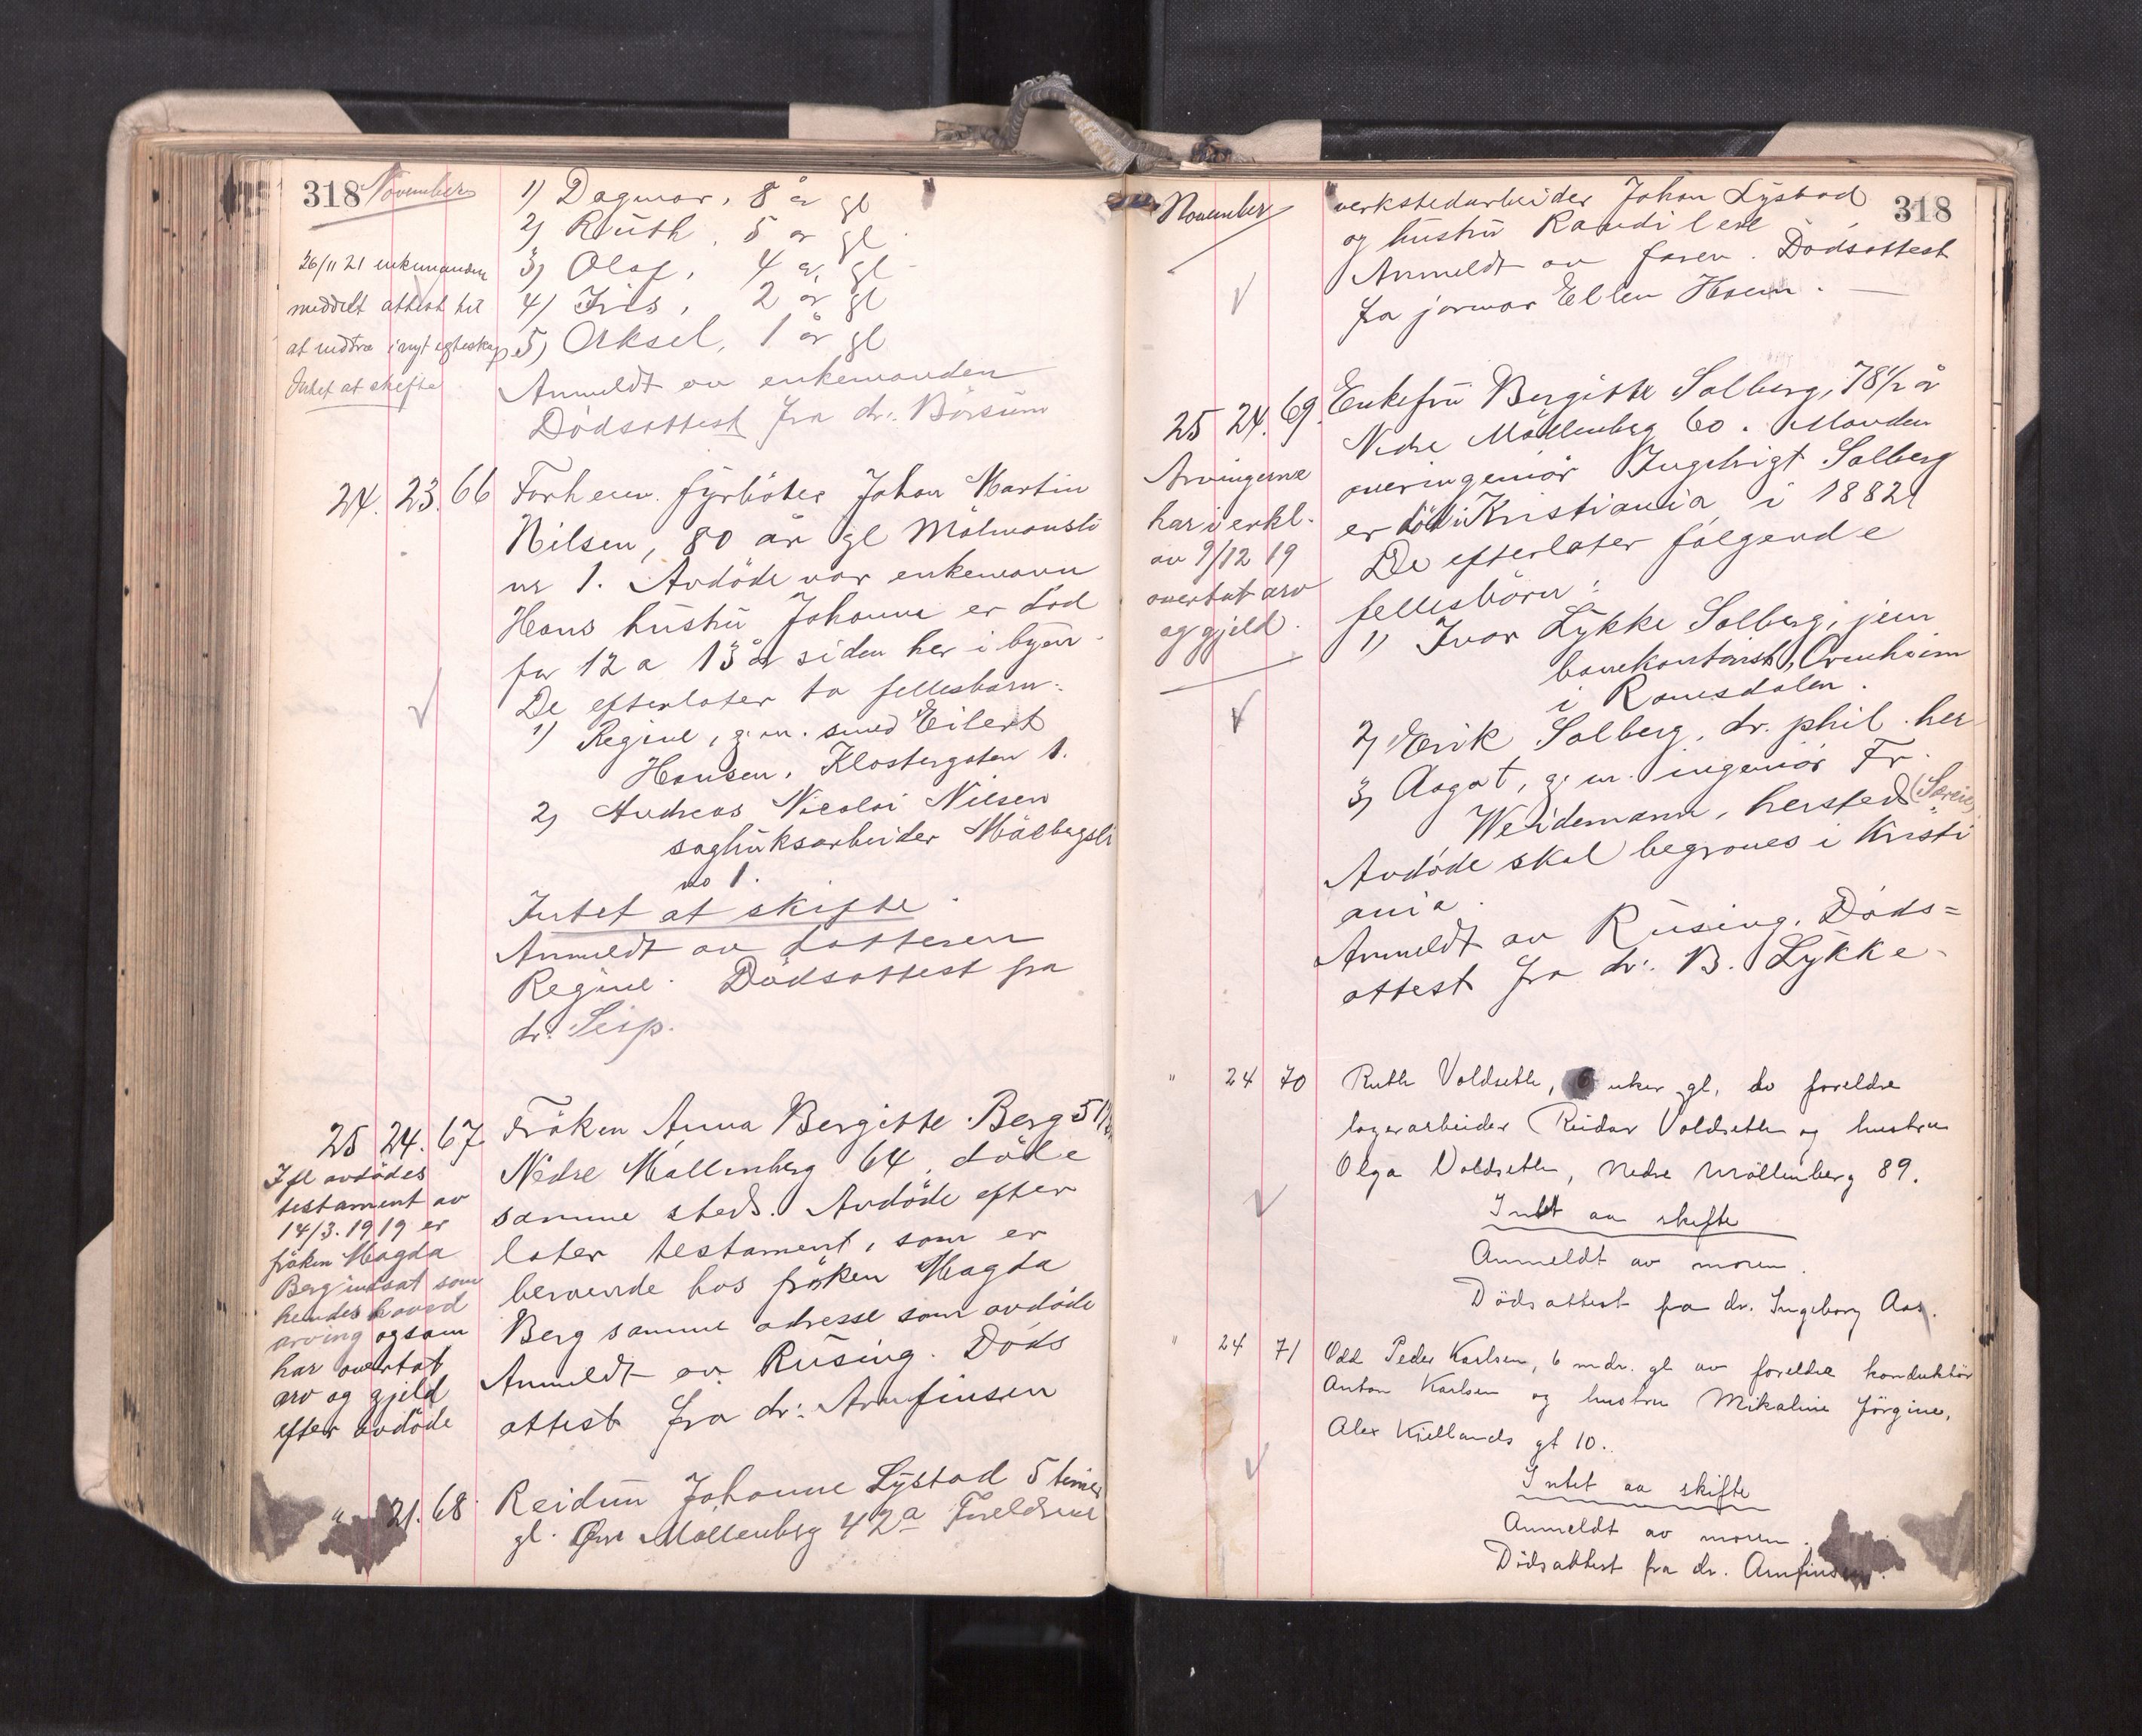 318 November
1) Dagmar, 8 år gl
2) Ruth, 5 år gl
3) Olaf, 4 år gl
4) Iris, 2 år gl
5) Aksel, 1 år gl
Anmeldt av enkemanden
Dødsattest fra dr. Börsum
26/11 21 enkemanden
meddelt attest til
at indtræ i nyt egteskap
Intet at skifte
24. 23. 66 Forhenv. fyrböter Johan Martin
Nilsen, 80 år gl
nr 1. Avdöde var enkemann
Hans hustru Johanna er död
for 12 a 13 år siden her i byen.
De efterlater to fellesbarn:
1) Regine, g. m. smed Eilert
Hansen, Klostergaten 1.
2) Andreas Nicolai Nilsen
sagbruksarbeider
no 1.
Intet at skifte.
Anmeldt av datteren
Regine. Dödsattest fra
dr.
25 24. 67. Fröken Anna Bergitte Berg
Nedre Möllenberg 64, döde
samme sted. Avdöde efter
later testament, som er
beroende hos fröken Magda
Berg samme adresse som avdöde
Anmeldt av Rusing. Döds
attest fra dr: Arnfinsen
Ifl avdödes
testament av
14/3. 1919 er
fröken Magda
Berg indsat som
hendes hoved
arving og som
har overtat
arv og gjeld
efter avdöde
" 21. 68. Reidun Johanne Lystad 5 timer
gl. Övr Möllenberg 42a Foreldrene
November 318
verkstedarbeider Johan Lystad
og hustru Randi
Anmeldt av faren. Dödsattest
fra jormor Ellen Hoem.
25 24. 69. Enkefru Bergitte Solberg, 78 1/2 år
Nedre Möllenberg 60. Manden
overingeniör Ingebrigt Solberg
er död i Kristiania i 1882
De efterlater fölgende
fellesbörn:
1) Ivar Lykke Solberg, jern
banekontorist,
i Romsdalen.
2) Erik Solberg, dr. phil. her
3) Aagot, g. m. ingeniör Fr.
Weidemann, hersteds
Avdöde skal begraves i Kristi
ania.
Anmeldt av Rusing. Döds=
attest fra dr: B. Lykke.
Arvingerne
har i erkl.
av 9/12 19
overtat arv
og gjeld.
" 24 70 Ruth Voldseth, 6 uker gl, av foreldre
lagerarbeider Reidar Voldseth og hustru
Olga Voldseth, Nedre Möllenberg 89.
Intet aa skifte
Anmeldt av moren.
Dödsattest fra dr. Ingeborg Aas.
" 24 71 Odd Peder Karlsen, 6 mdr. gl av foreldre konduktör
Anton Karlsen og hustru Mikaline Jörgine,
Alex Kiellands gt 10.
Intet aa skifte
Anmeldt av moren.
Dödsattest fra dr. Arnfinsen.